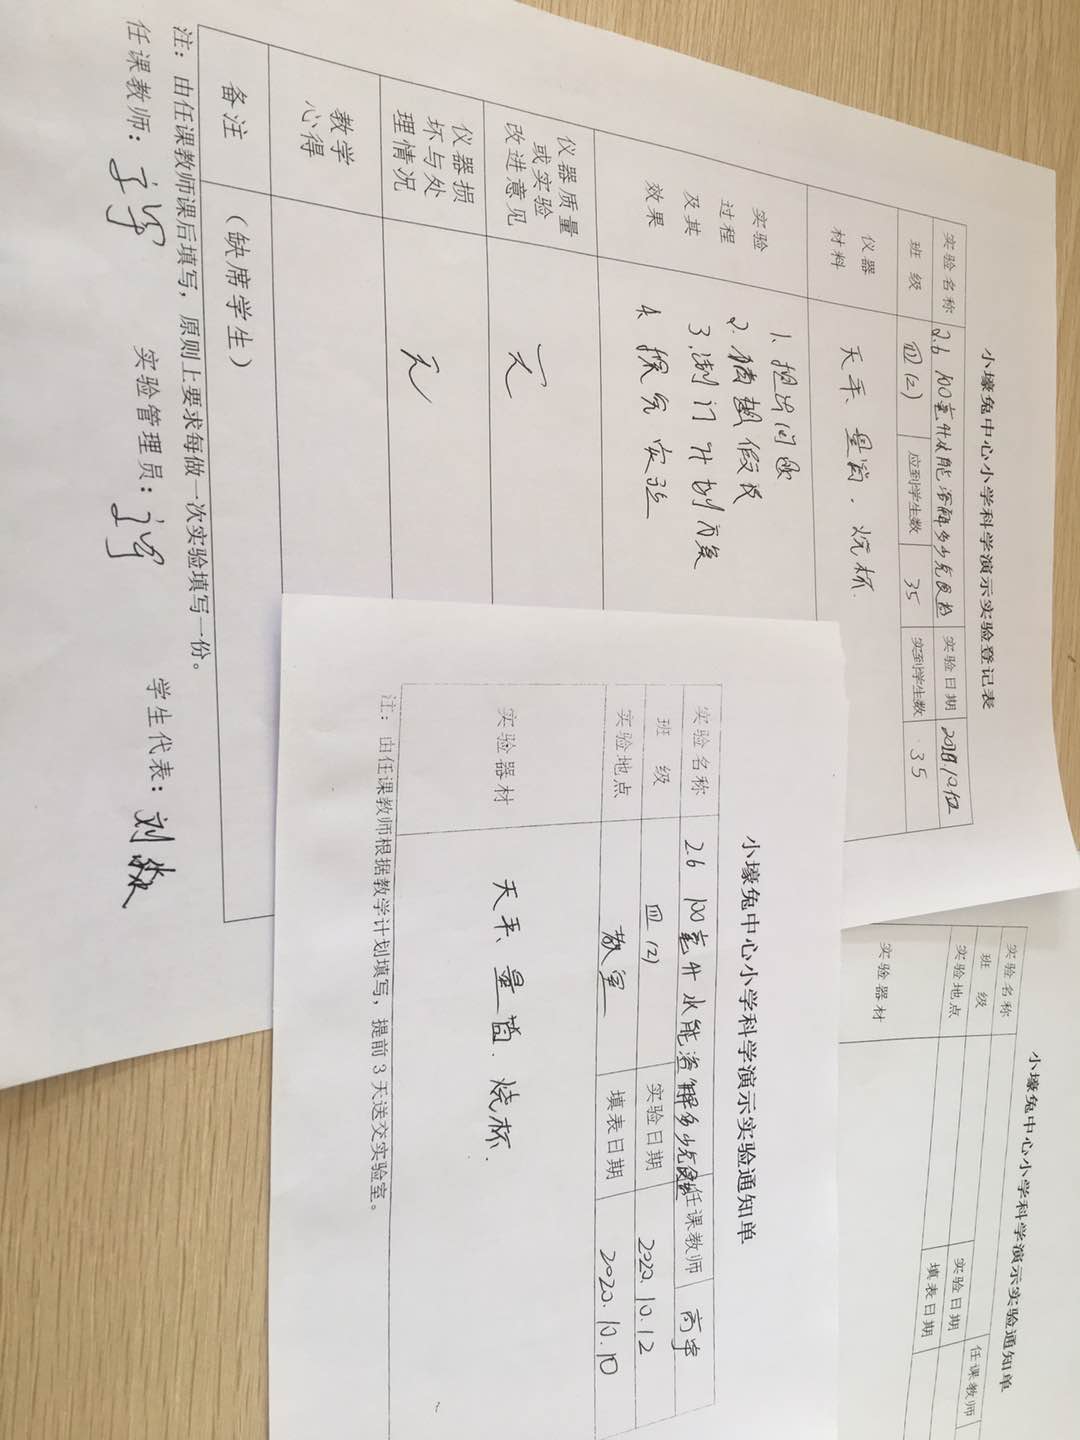 小壕兔中心小学科学演示实验登记表
实验名称 2.6 100毫升水能溶解多少克食 实验日期
班 级 四(2) 应到学生数 35 实到学生数 35
仪器
材料 天平、量筒、烧杯.
实验
过程
及其
效果
1、提出问题
2、猜想假设
3、制订计划方案
4、探究实验
仪器质量
或实验
改进意见 无
仪器损
坏与处
理情况 无
教学
心得
备注 （缺席学生）
注：由任课教师课后填写，原则上要求每做一次实验填写一份。
任课教师： 实验管理员： 学生代表：刘
小壕兔中心小学科学演示实验通知单
实验名称 2.6 100毫升水能溶解多少克食 任课教师 高宇
班 级 四(2) 实验日期 2020.10.12
实验地点 教室 填表日期 2020.10.10
实验器材 天平、量筒、烧杯.
注：由任课教师根据教学计划填写，提前3天送交实验室。
小壕兔中心小学科学演示实验通知单
实验名称 任课教师
班 级 实验日期
实验地点 填表日期
实验器材